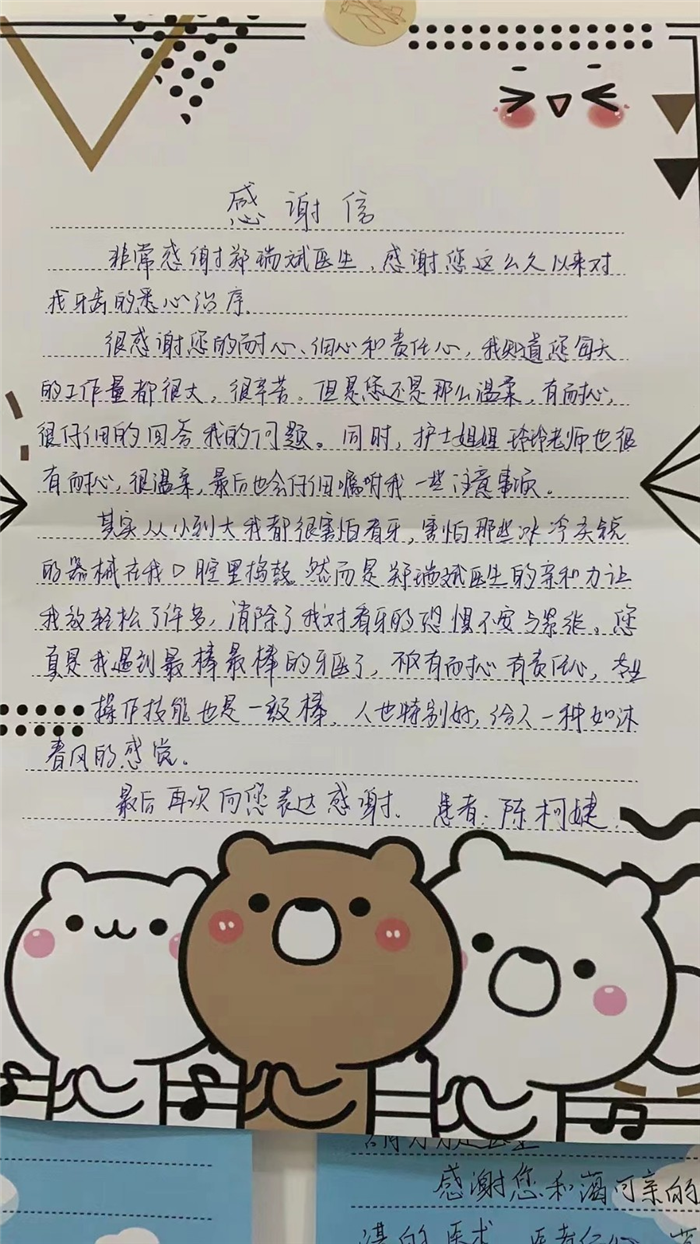 感谢信
非常感谢郑瑞斌医生，感谢您这么久以来对
我牙齿的悉心治疗。
很感谢您的耐心、细心和责任心，我知道您每天
的工作量都很大，很辛苦。但是您还是那么温柔，有耐心，
很仔细的回答我的问题。同时，护士姐姐玲玲老师也很
有耐心，很温柔，最后也会仔细嘱咐我一些注意事项。
其实从小到大我都很害怕看牙，害怕那些冰冷尖锐
的器械在我口腔里捣鼓。然而是郑瑞斌医生的亲和力让
我放轻松了许多，消除了我对看牙的恐惧不安与紧张。您
真是我遇到最棒最棒的牙医了，不仅有耐心有责任心，专业
操作技能也是一级棒，人也特别好，给人一种如沐
春风的感觉。
最后再次向您表达感谢。患者：陈柯婕
感谢您和蔼可亲的
湛的医术，医者仁心